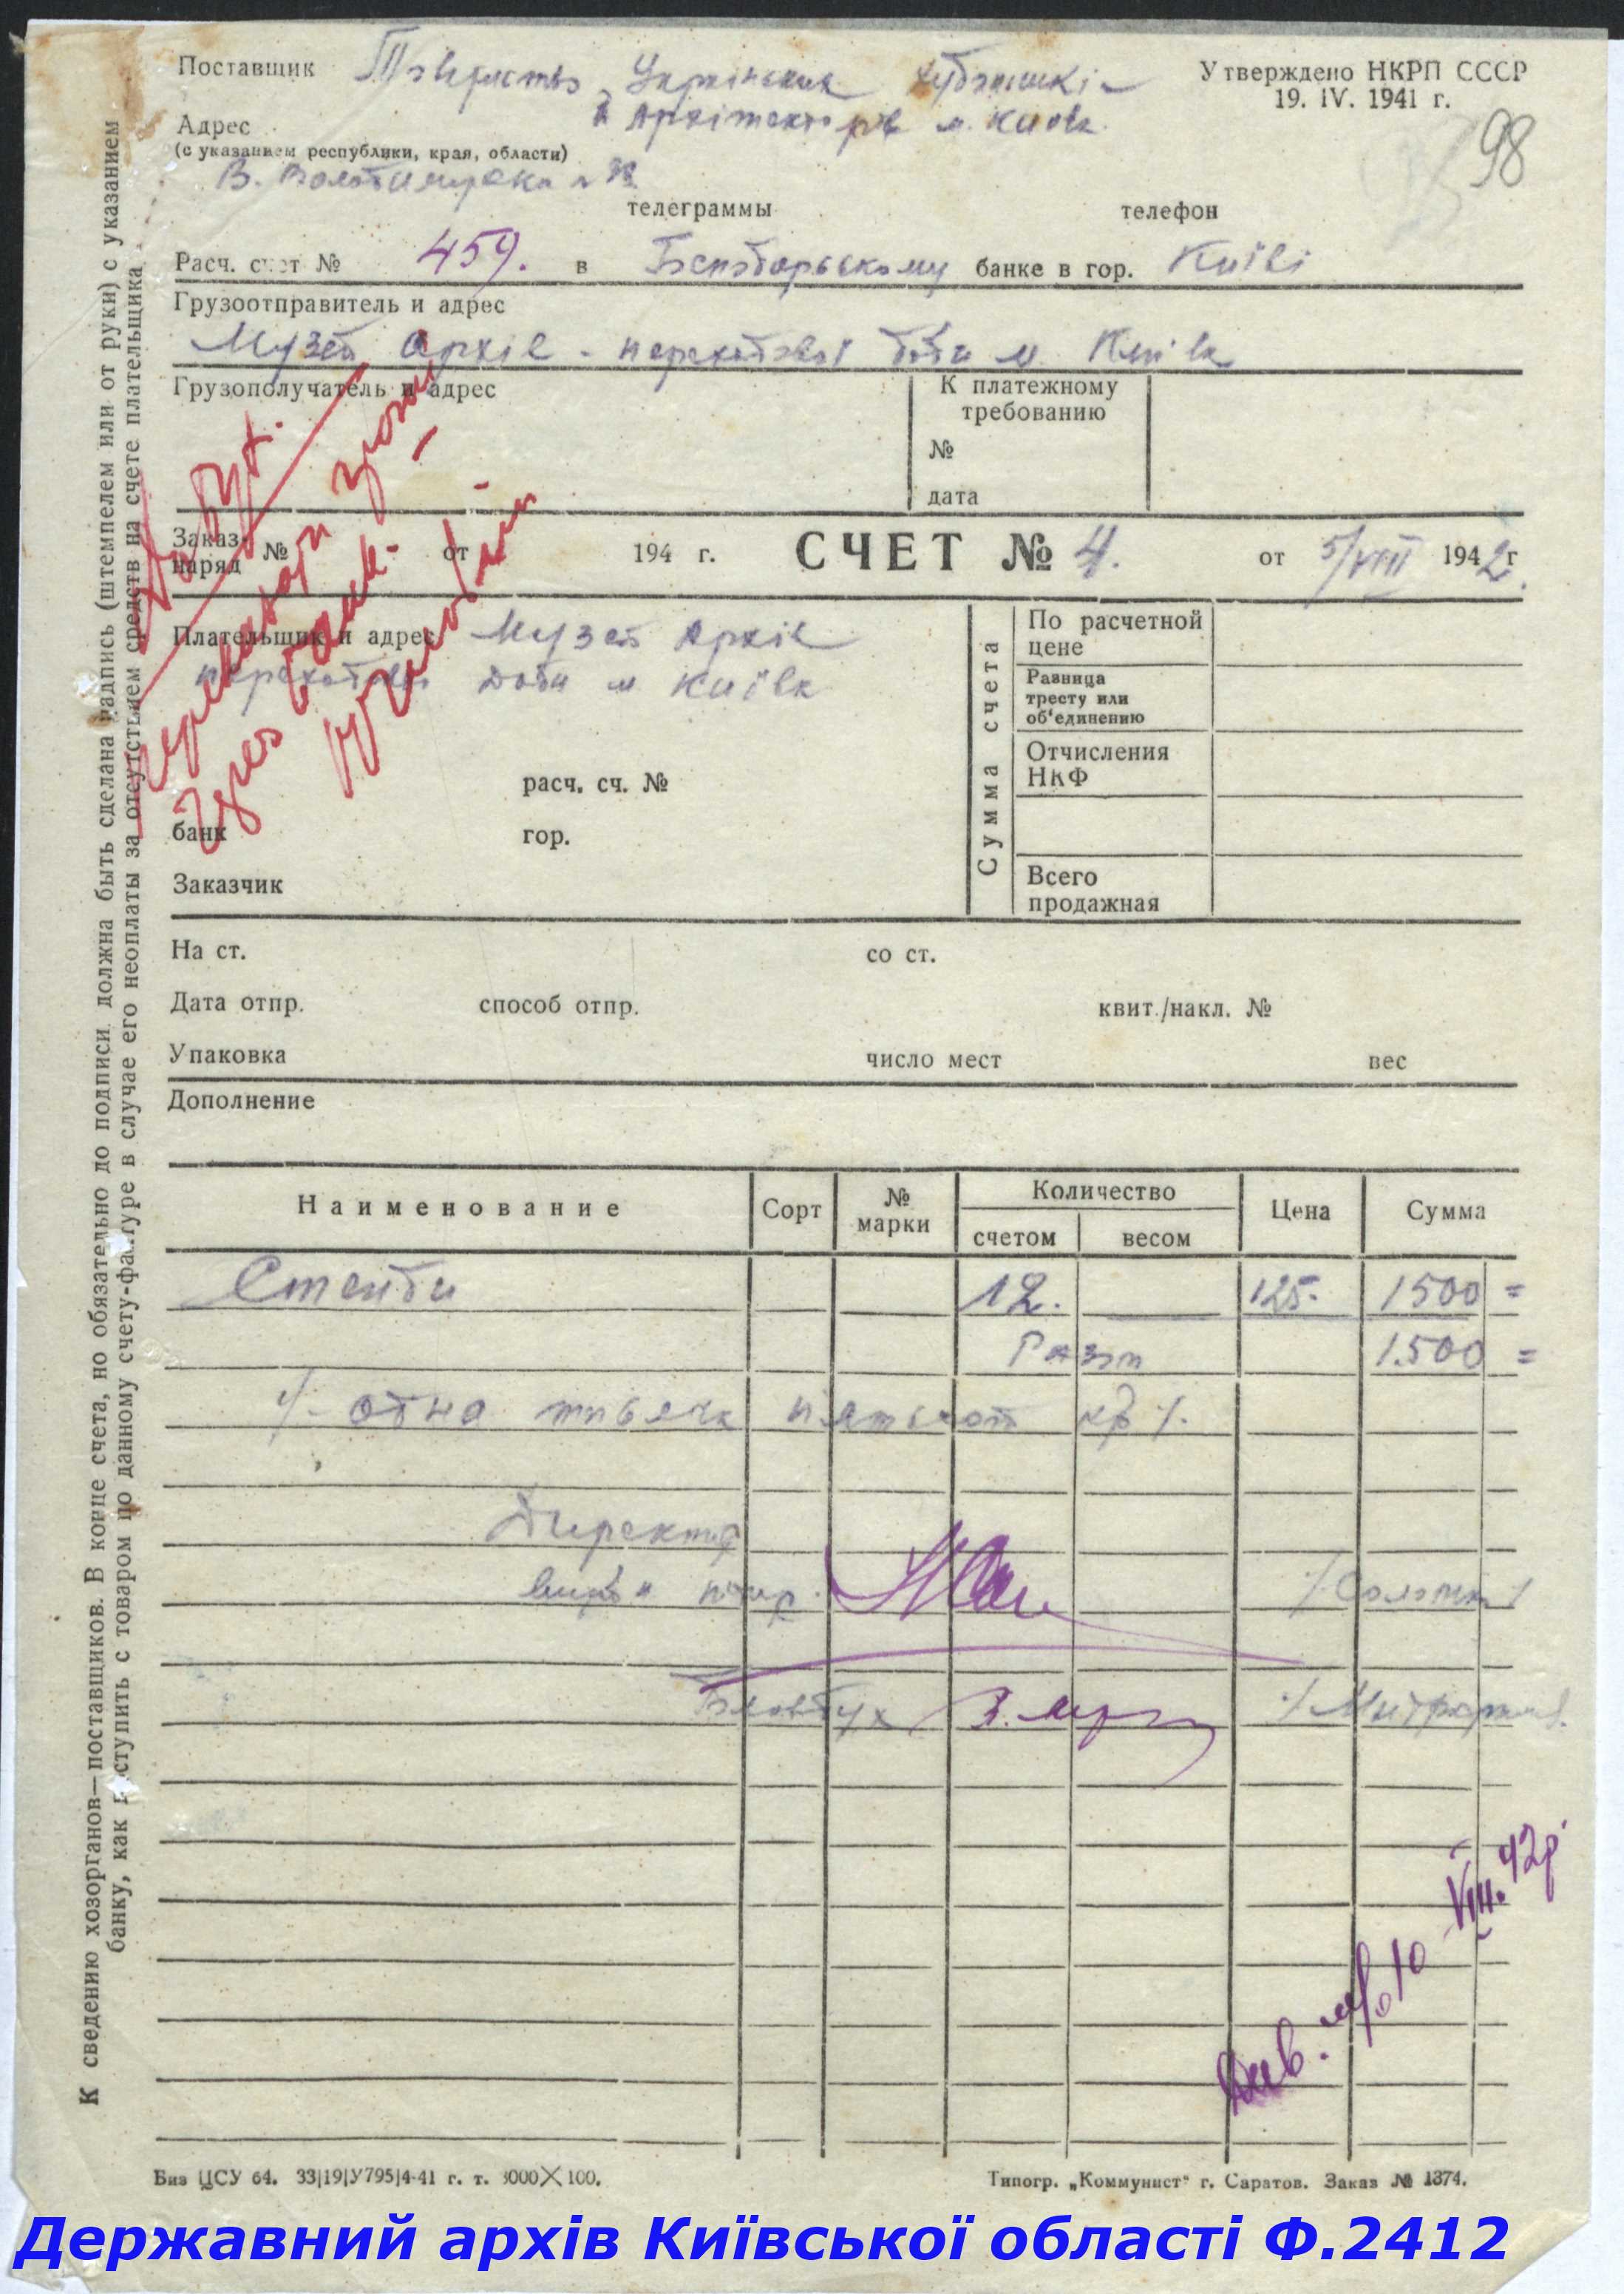 Поставщик Товариство Українських художників
Утверждено НКРП СССР
19. IV. 1941 г.
й Архітекторів м. Київа
98
Адрес
(с указанием республики, края, области)
В. Володимирська
телеграммы телефон
Расч. счет № 459. в Господарському банке в гор. Київі
Грузоотправитель и адрес
Музей Архів - переходової доби м. Київа
Грузополучатель и адрес
К платежному
требованию
№
дата
Заказ-
наряд № от 194 г. СЧЕТ № 4. от 5/VIII 1942 г.
Плательщик и адрес Музей Архів
переходової доби м Київа
расч. сч. №
банк гор.
Заказчик
Сумма счета
По расчетной
цене
Разница
тресту или
об‘единению
Отчисления
НКФ
Всего
продажная
На ст. со ст.
Дата отпр. способ отпр. квит./накл. №
Упаковка число мест вес
Дополнение
Наименование Сорт № марки Количество Цена Сумма
счетом весом
Стенди 12. 125.- 1500 =
Разом 1.500 =
/- одна тисяча пятьсот крб /.
Директор
Бухг
10 VIII. 42р.
К сведению хозорганов—поставщиков. В конце счета, но обязательно до подписи должна быть сделана надпись (штемпелем или от руки) с указанием
банку, как поступить с товаром по данному счету-фактуре в случае его неоплаты за отсутствием средств на счете плательщика
Биз ЦСУ 64. 33|19|У795|4-41 г. т. 3000×100.
Типогр. „Коммунист“ г. Саратов. Заказ № 1374.
Державний архів Київської області Ф.2412